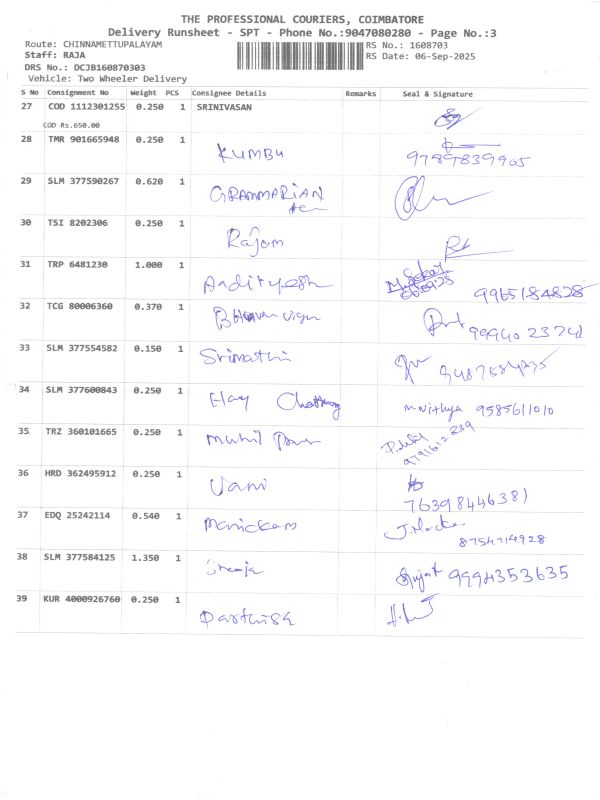 THE PROFESSIONAL COURIERS, COIMBATORE
Delivery Runsheet - SPT - Phone No.:9047080280 - Page No.:3
Route: CHINNAMETTUPALAYAM RS No.: 1608703
Staff: RAJA RS Date: 06-Sep-2025
DRS No.: DCJB160870303
Vehicle: Two Wheeler Delivery
S No Consignment No Weight PCS Consignee Details Remarks Seal & Signature
27 COD 1112301255 0.250 1 SRINIVASAN
COD Rs.650.00
28 TMR 901665948 0.250 1 KUMBU
9789839905
29 SLM 377590267 0.620 1 GRAMMARIAN
30 TSI 8202306 0.250 1 Rajam
31 TRP 6481230 1.000 1 Aadityesh 06.09.25 9965184828
32 TCG 80006360 0.370 1
33 SLM 377554582 0.150 1 Srimathi
34 SLM 377600843 0.250 1 Elay M Nithya 9585611010
35 TRZ 360101665 0.250 1 Mukil 9791612839
36 HRD 362495912 0.250 1 Vani
7639844638
37 EDQ 25242114 0.540 1 Manickam
8754714928
38 SLM 377584125 1.350 1 Sreeja Sujat 9994353635
39 KUR 4000926760 0.250 1 Darthish